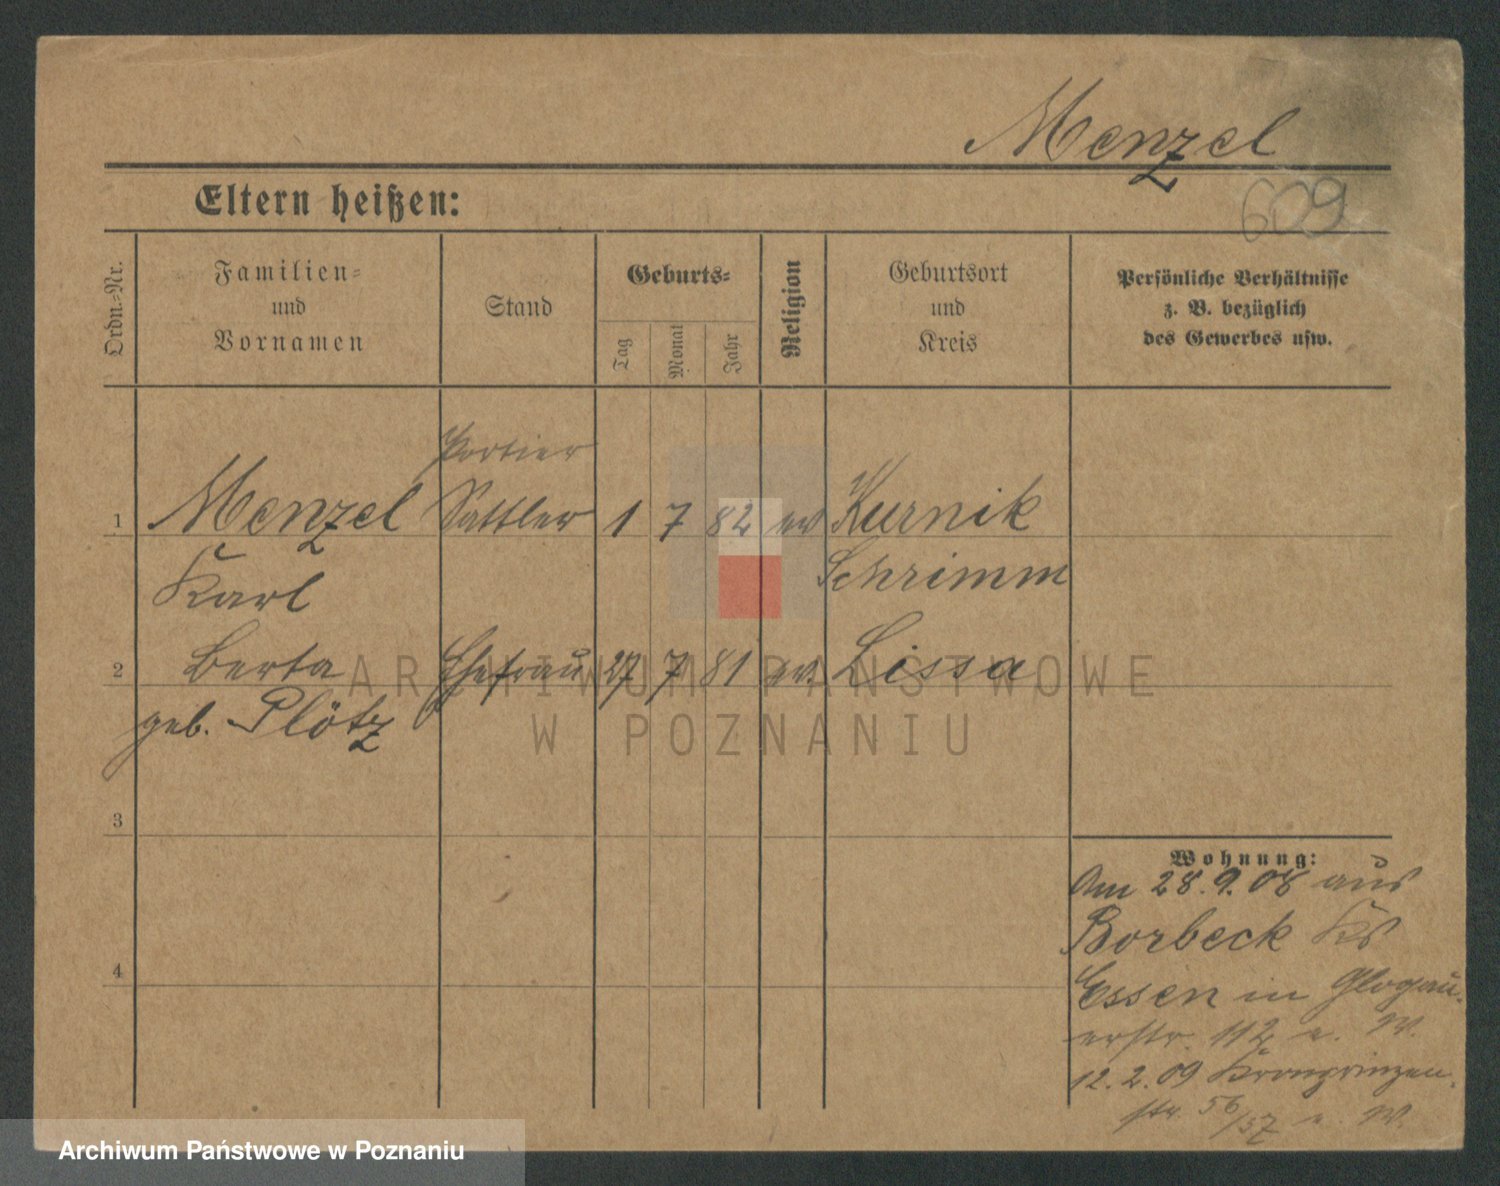 Menzel
609
Eltern heißen:
Ordn.-Nr.
Familien-
und
Vornamen
Stand
Geburts-
Tag
Monat
Jahr
Religion
Geburtsort
und
Kreis
Persönliche Verhältnisse
z. B. bezüglich
des Gewerbes usw.
Portier
1 Menzel Sattler 1 7 82 ev Kurnik
Karl Schrimm
2 Berta Ehefrau 27 7 81 ev. Lissa
geb. Plötz
3
4
Wohnung:
Am 28.9.08 aus
Borbeck Kr
Essen in Glogau-
erstr. 112 e. W.
12.2.09 Kronprinzen-
str. 56/57 e. W.
ARCHIWUM PAŃSTWOWE
W POZNANIU
Archiwum Państwowe w Poznaniu